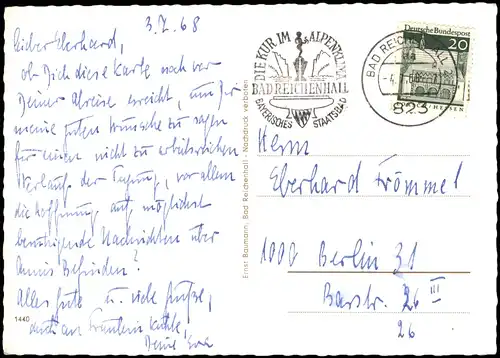 3.7.68
Lieber Eberhard,
ob Dich diese Karte noch vor
Deiner Abreise erreicht, um Dir
meine guten Wünsche zu sagen
für einen nicht zu arbeitsreichen
Verlauf der Tagung, vor allem
die Hoffnung auf möglichst
beruhigende Nachrichten über
Befinden?
Alles Gute u. viele Grüße,
auch an Fräulein
Deine Eva
1440
Ernst Baumann, Bad Reichenhall - Nachdruck verboten
DIE KUR IM ALPENKLIMA
BAD REICHENHALL
BAYERISCHES STAATSBAD
BAD REICHENHALL
823
Deutsche Bundespost
20
Herrn
Eberhard Frömmel
1000 Berlin 31
Barstr. 26 III
26